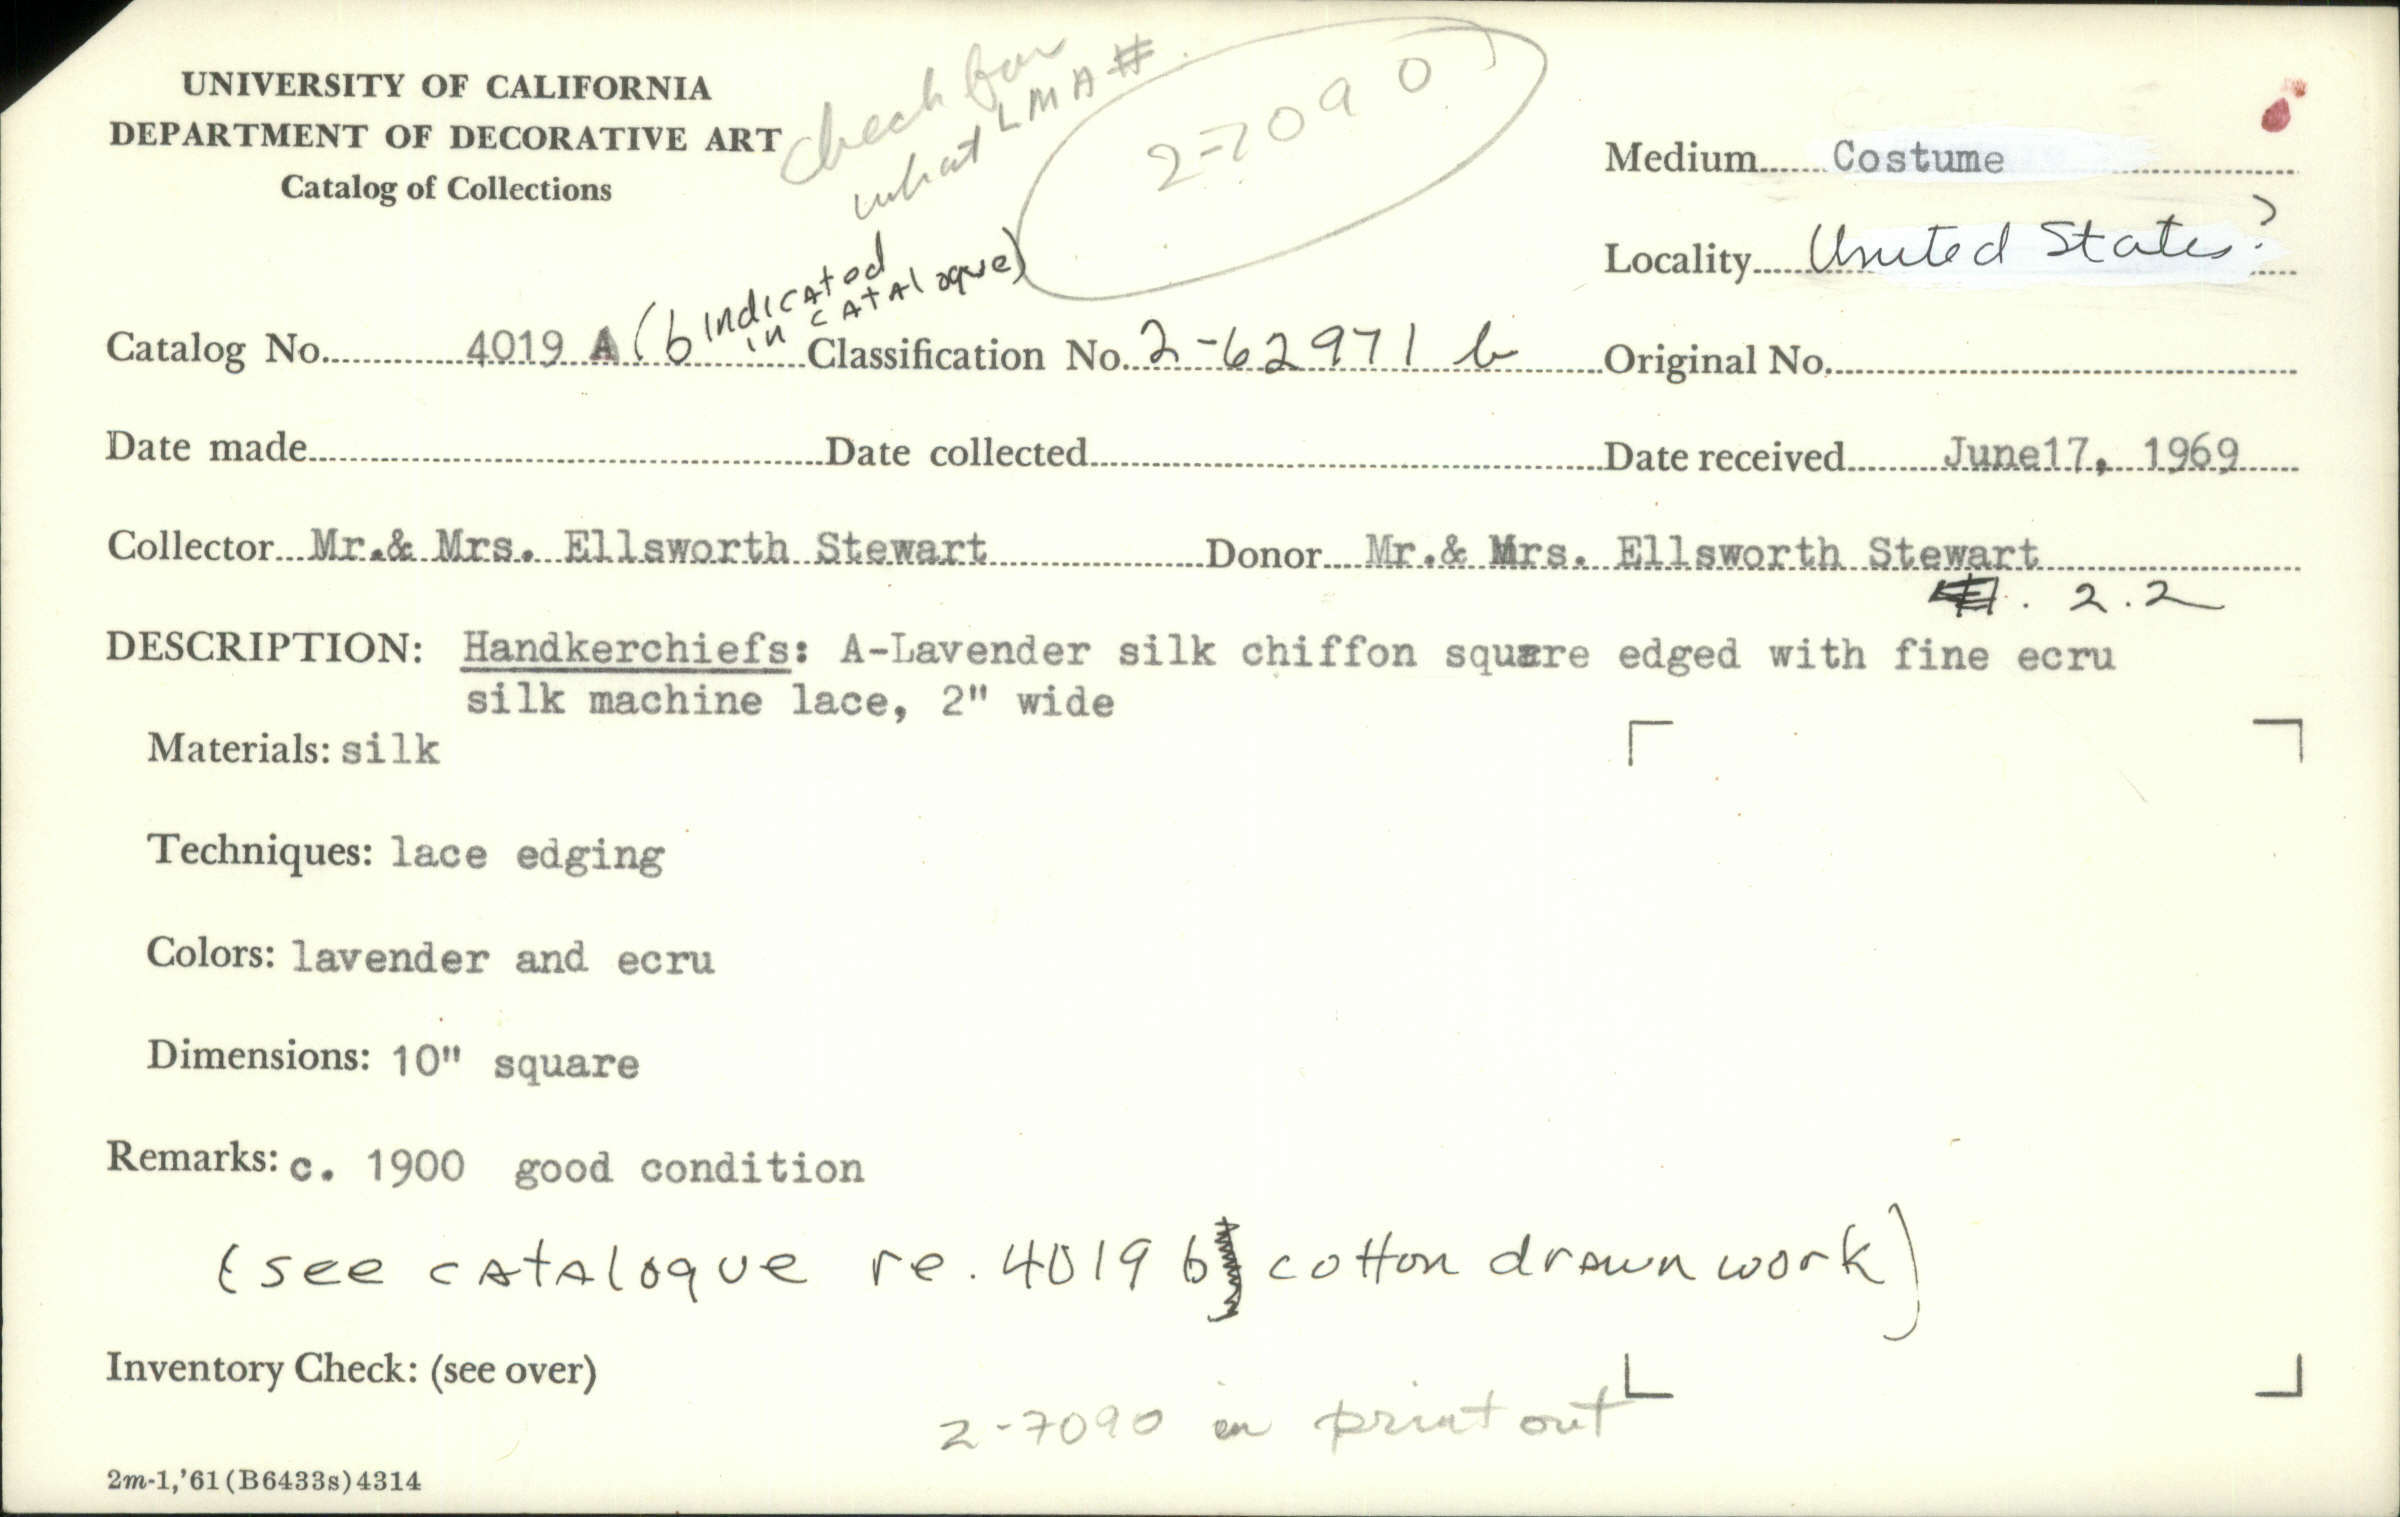 UNIVERSITY OF CALIFORNIA
DEPARTMENT OF DECORATIVE ART
Catalog of Collections
check for
what LMA #
2-7090
Medium Costume
Locality United States?
Catalog No. 4019 A (b indicated in catalogue) Classification No. 2-62971 b Original No.
Date made Date collected Date received June17, 1969
Collector Mr.& Mrs. Ellsworth Stewart Donor Mr.& Mrs. Ellsworth Stewart
2.2
DESCRIPTION: Handkerchiefs: A-Lavender silk chiffon square edged with fine ecru
silk machine lace, 2" wide
Materials: silk
Techniques: lace edging
Colors: lavender and ecru
Dimensions: 10" square
Remarks: c. 1900 good condition
(see catalogue re. 4019 b cotton drawn work)
Inventory Check: (see over)
2-7090 in print out
2m-1,'61(B6433s)4314